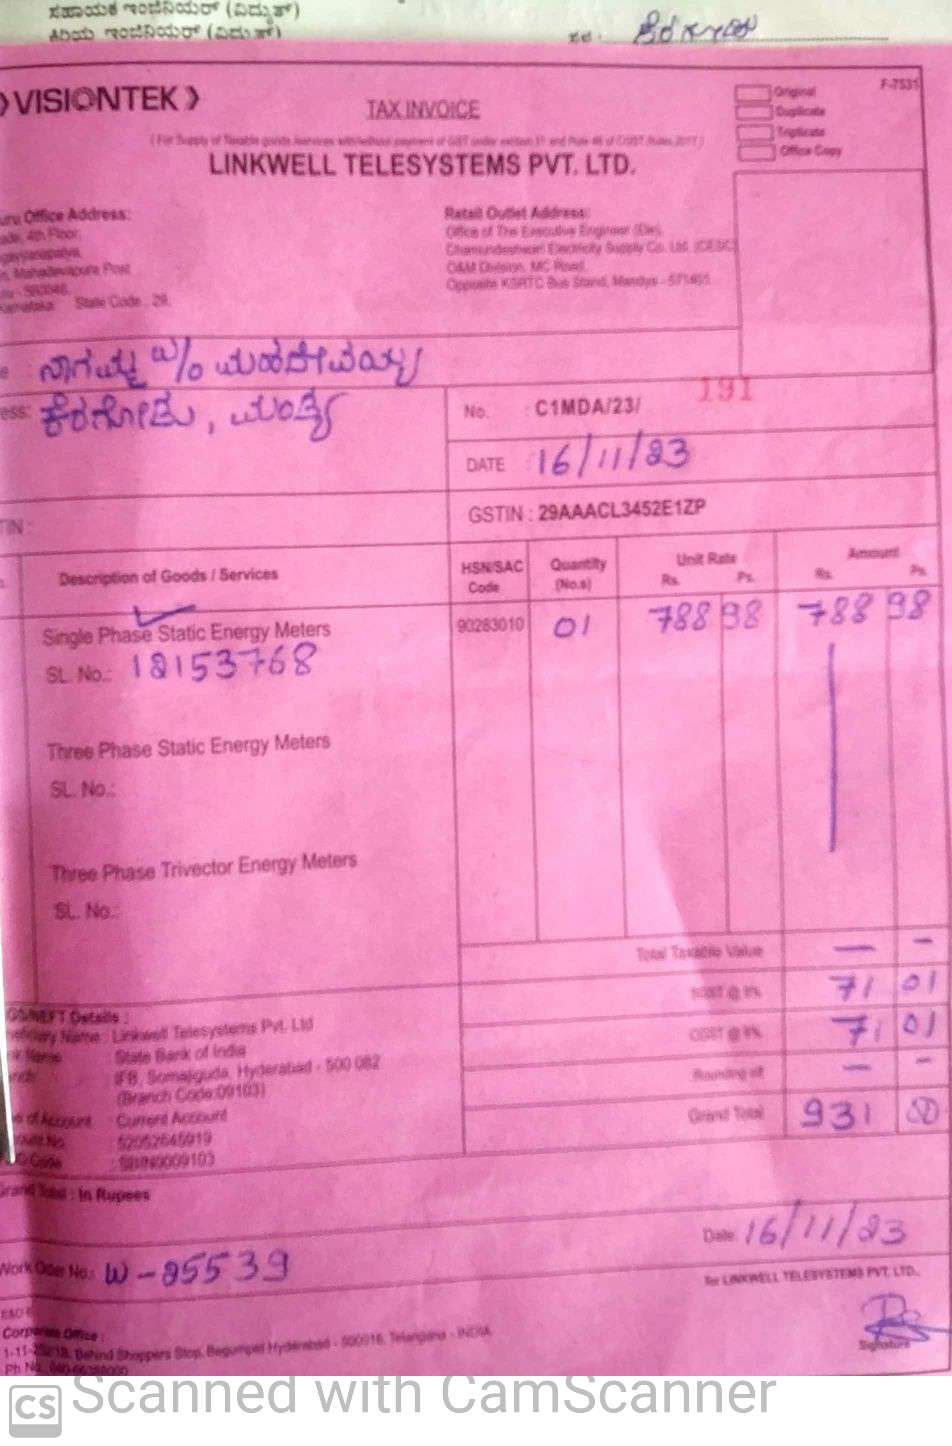 ಸಹಾಯಕ ಇಂಜಿನಿಯರ್ (ವಿದ್ಯುತ್)
ಕಿರಿಯ ಇಂಜಿನಿಯರ್ (ವಿದ್ಯುತ್)
VISIONTEK
TAX INVOICE
F-7531
Original
Duplicate
Triplicate
Office Copy
LINKWELL TELESYSTEMS PVT. LTD.
Office Address:
4th Floor,
Mahadevapura Post
State Code : 29.
Retail Outlet Address:
Office of The Executive Engineer (Ele),
Chamundeshwari Electricity Supply Co. Ltd. (CESC)
O&M Division, MC Road,
Opposite KSRTC Bus Stand, Mandya - 571401
ಮಹದೇವಯ್ಯ
ಕೆರಗೋಡು, ಮಂಡ್ಯ
No. : C1MDA/23/ 191
DATE : 16/11/23
GSTIN : 29AAACL3452E1ZP
Description of Goods / Services
HSN/SAC Code
Quantity (No.s)
Unit Rate Rs. Ps.
Amount Rs. Ps.
Single Phase Static Energy Meters 90283010 01 788 98 788 98
SL. No.: 18153768
Three Phase Static Energy Meters
SL. No.:
Three Phase Trivector Energy Meters
SL. No.:
Total Taxable Value — -
SGST @ 9% 71 01
CGST @ 9% 71 01
Rounding off — -
Grand Total 931
Details :
Name : Linkwell Telesystems Pvt. Ltd
State Bank of India
IFB, Somajiguda, Hyderabad - 500 082
(Branch Code:09103)
of Account : Current Account
: 52052645919
Code : SBIN0009103
Grand Total : In Rupees
Date: 16/11/23
Work Oder No.: W-25539
for LINKWELL TELESYSTEMS PVT. LTD.,
Signature
Corporate Office :
Behind Shoppers Stop, Begumpet Hyderabad - 500016, Telangana - INDIA
Ph No.
CS Scanned with CamScanner